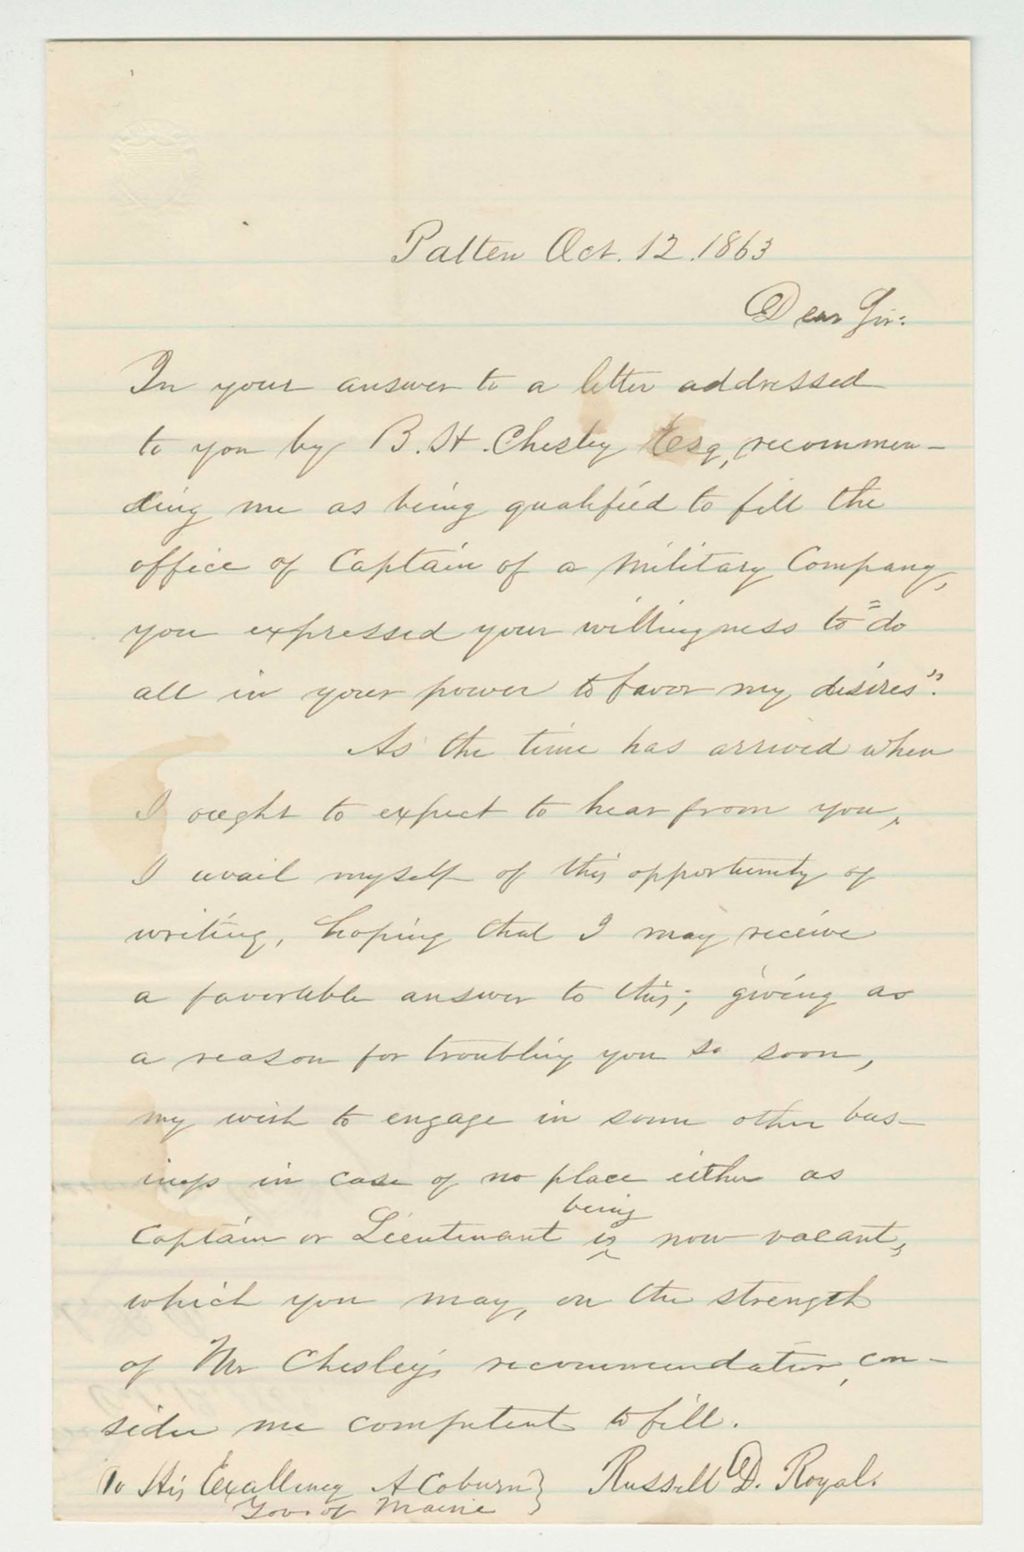 Patten Oct. 12. 1863
Dear Sir:
In your answer to a letter addressed
to you by B. H. Chesley Esq, recommen-
ding me as being qualified to fill the
office of Captain of a Military Company,
you expressed your willingness to "do
all in your power to favor my desires".
As the time has arrived when
I ought to expect to hear from you,
I avail myself of this opportunity of
writing, hoping that I may receive
a favorable answer to this; giving as
a reason for troubling you so soon,
my wish to engage in some other bus-
iness in case of no place either as
being
Captain or Lieutenant is now vacant,
which you may, on the strength
of Mr Chesley's recommendation, con-
sider me competent to fill.
To His Excellency A Coburn } Russell D. Royal.
Gov. of Maine